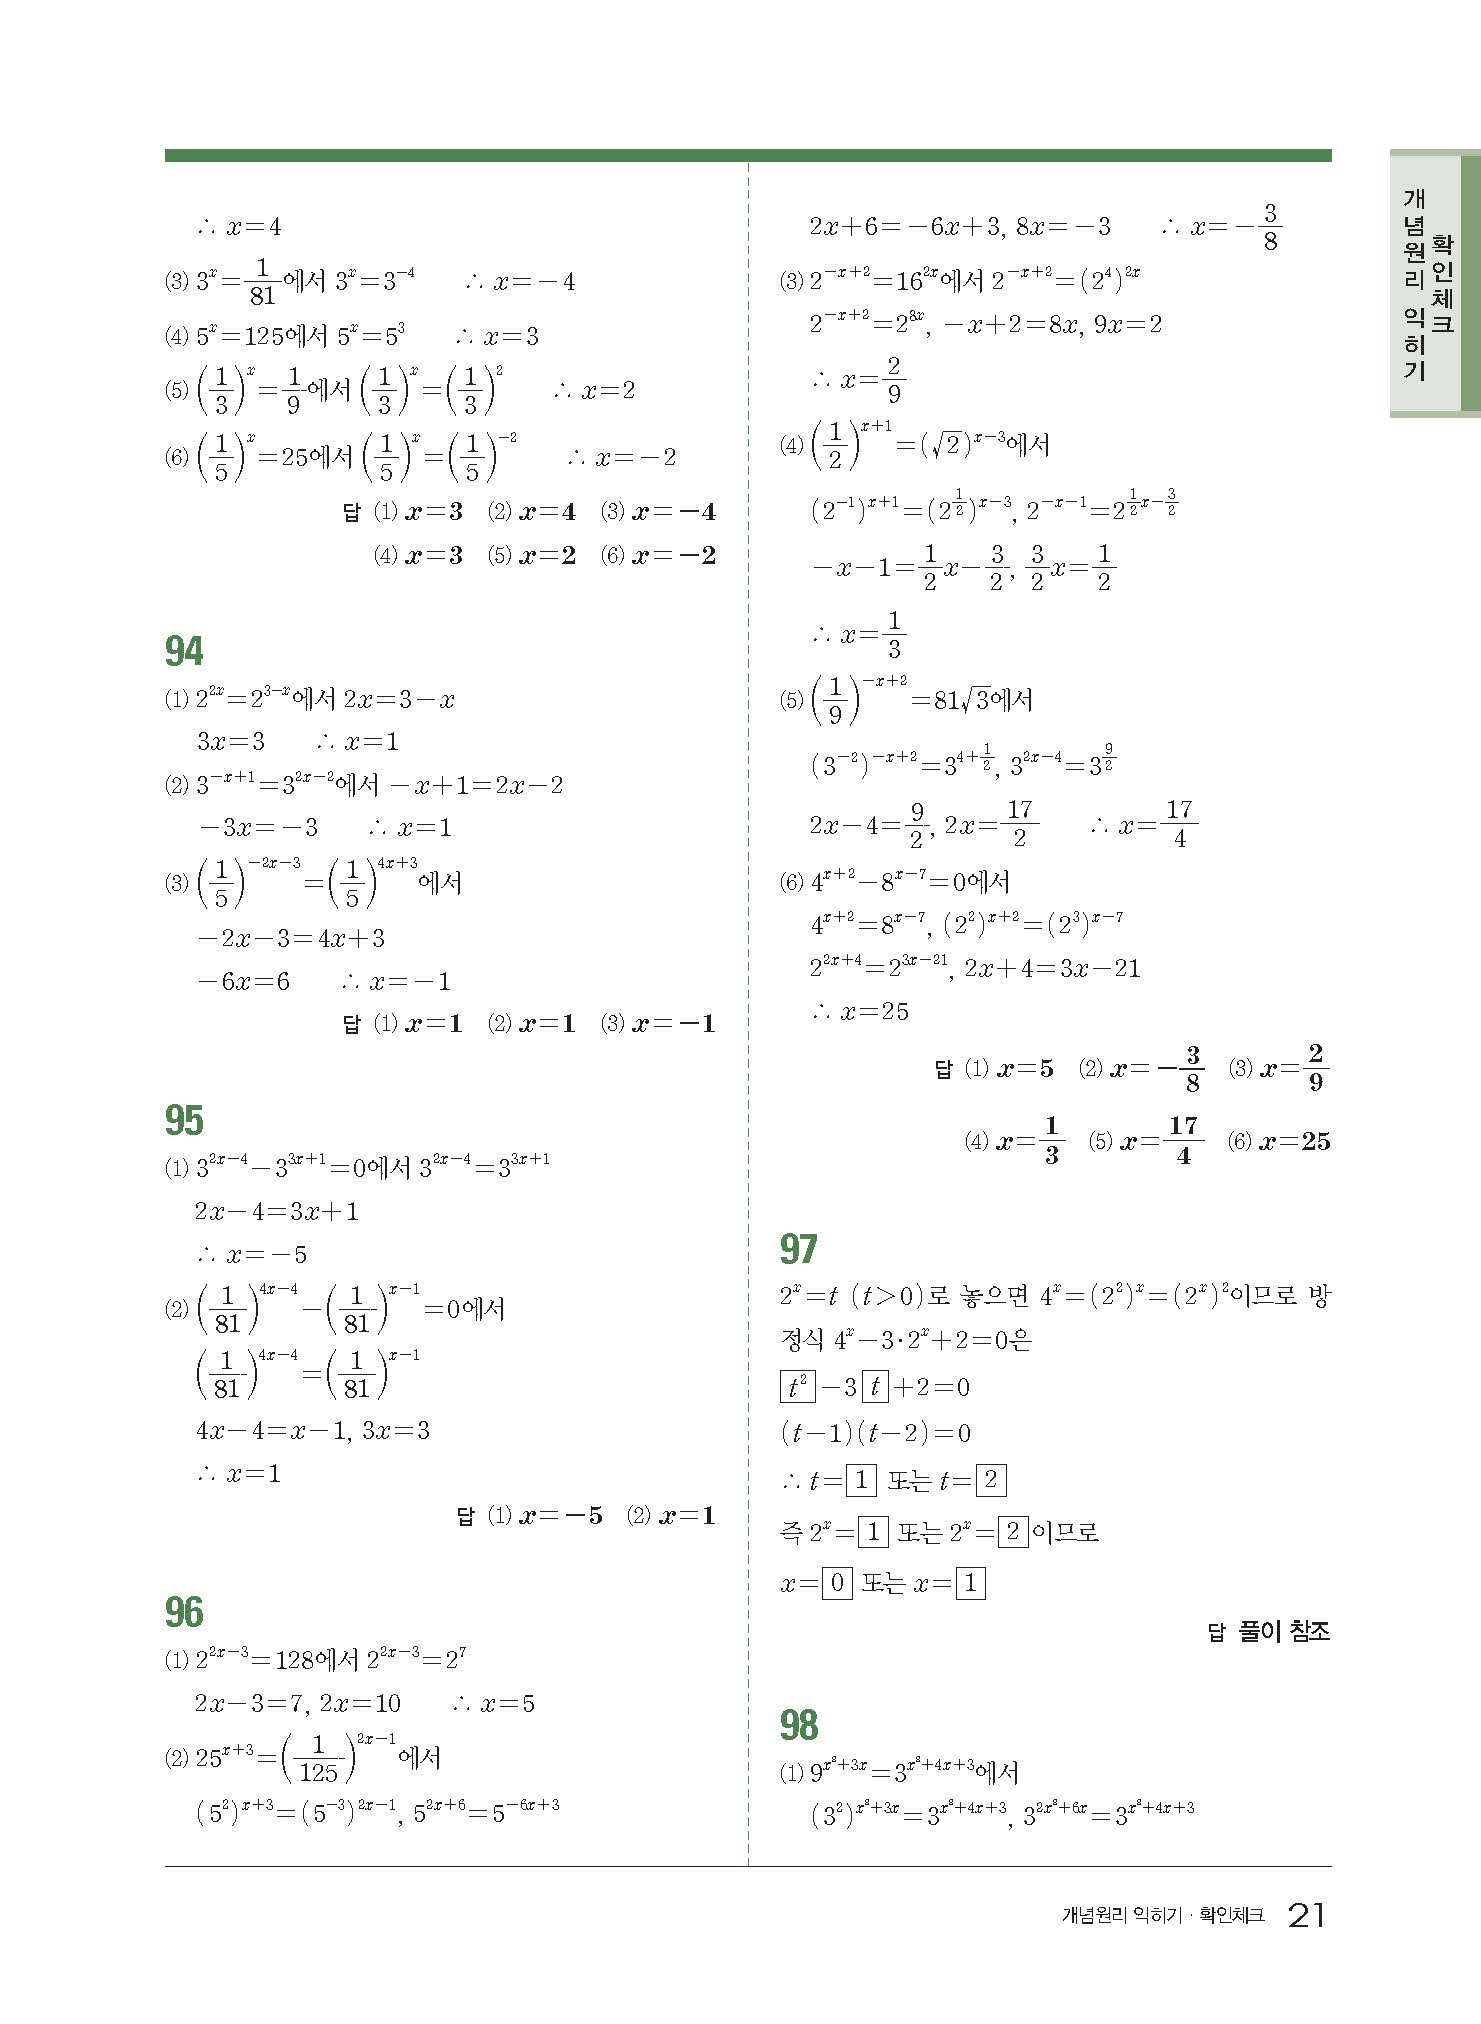 ∴ x=4
(3) 3^x=1/81에서 3^x=3^-4 ∴ x=-4
(4) 5^x=125에서 5^x=5^3 ∴ x=3
(5) (1/3)^x=1/9에서 (1/3)^x=(1/3)^2 ∴ x=2
(6) (1/5)^x=25에서 (1/5)^x=(1/5)^-2 ∴ x=-2
답 (1) x=3 (2) x=4 (3) x=-4
(4) x=3 (5) x=2 (6) x=-2
94
(1) 2^2x=2^(3-x)에서 2x=3-x
3x=3 ∴ x=1
(2) 3^(-x+1)=3^(2x-2)에서 -x+1=2x-2
-3x=-3 ∴ x=1
(3) (1/5)^(-2x-3)=(1/5)^(4x+3)에서
-2x-3=4x+3
-6x=6 ∴ x=-1
답 (1) x=1 (2) x=1 (3) x=-1
95
(1) 3^(2x-4)-3^(3x+1)=0에서 3^(2x-4)=3^(3x+1)
2x-4=3x+1
∴ x=-5
(2) (1/81)^(4x-4)-(1/81)^(x-1)=0에서
(1/81)^(4x-4)=(1/81)^(x-1)
4x-4=x-1, 3x=3
∴ x=1
답 (1) x=-5 (2) x=1
96
(1) 2^(2x-3)=128에서 2^(2x-3)=2^7
2x-3=7, 2x=10 ∴ x=5
(2) 25^(x+3)=(1/125)^(2x-1)에서
(5^2)^(x+3)=(5^-3)^(2x-1), 5^(2x+6)=5^(-6x+3)
2x+6=-6x+3, 8x=-3 ∴ x=-3/8
(3) 2^(-x+2)=16^2x에서 2^(-x+2)=(2^4)^2x
2^(-x+2)=2^8x, -x+2=8x, 9x=2
∴ x=2/9
(4) (1/2)^(x+1)=(√2)^(x-3)에서
(2^-1)^(x+1)=(2^(1/2))^(x-3), 2^(-x-1)=2^(1/2x-3/2)
-x-1=1/2x-3/2, 3/2x=1/2
∴ x=1/3
(5) (1/9)^(-x+2)=81√3에서
(3^-2)^(-x+2)=3^(4+1/2), 3^(2x-4)=3^(9/2)
2x-4=9/2, 2x=17/2 ∴ x=17/4
(6) 4^(x+2)-8^(x-7)=0에서
4^(x+2)=8^(x-7), (2^2)^(x+2)=(2^3)^(x-7)
2^(2x+4)=2^(3x-21), 2x+4=3x-21
∴ x=25
답 (1) x=5 (2) x=-3/8 (3) x=2/9
(4) x=1/3 (5) x=17/4 (6) x=25
97
2^x=t (t>0)로 놓으면 4^x=(2^2)^x=(2^x)^2이므로 방
정식 4^x-3·2^x+2=0은
t^2-3t+2=0
(t-1)(t-2)=0
∴ t=1 또는 t=2
즉 2^x=1 또는 2^x=2이므로
x=0 또는 x=1
답 풀이 참조
98
(1) 9^(x^2+3x)=3^(x^2+4x+3)에서
(3^2)^(x^2+3x)=3^(x^2+4x+3), 3^(2x^2+6x)=3^(x^2+4x+3)
개념원리 익히기
확인체크
개념원리 익히기 · 확인체크 21